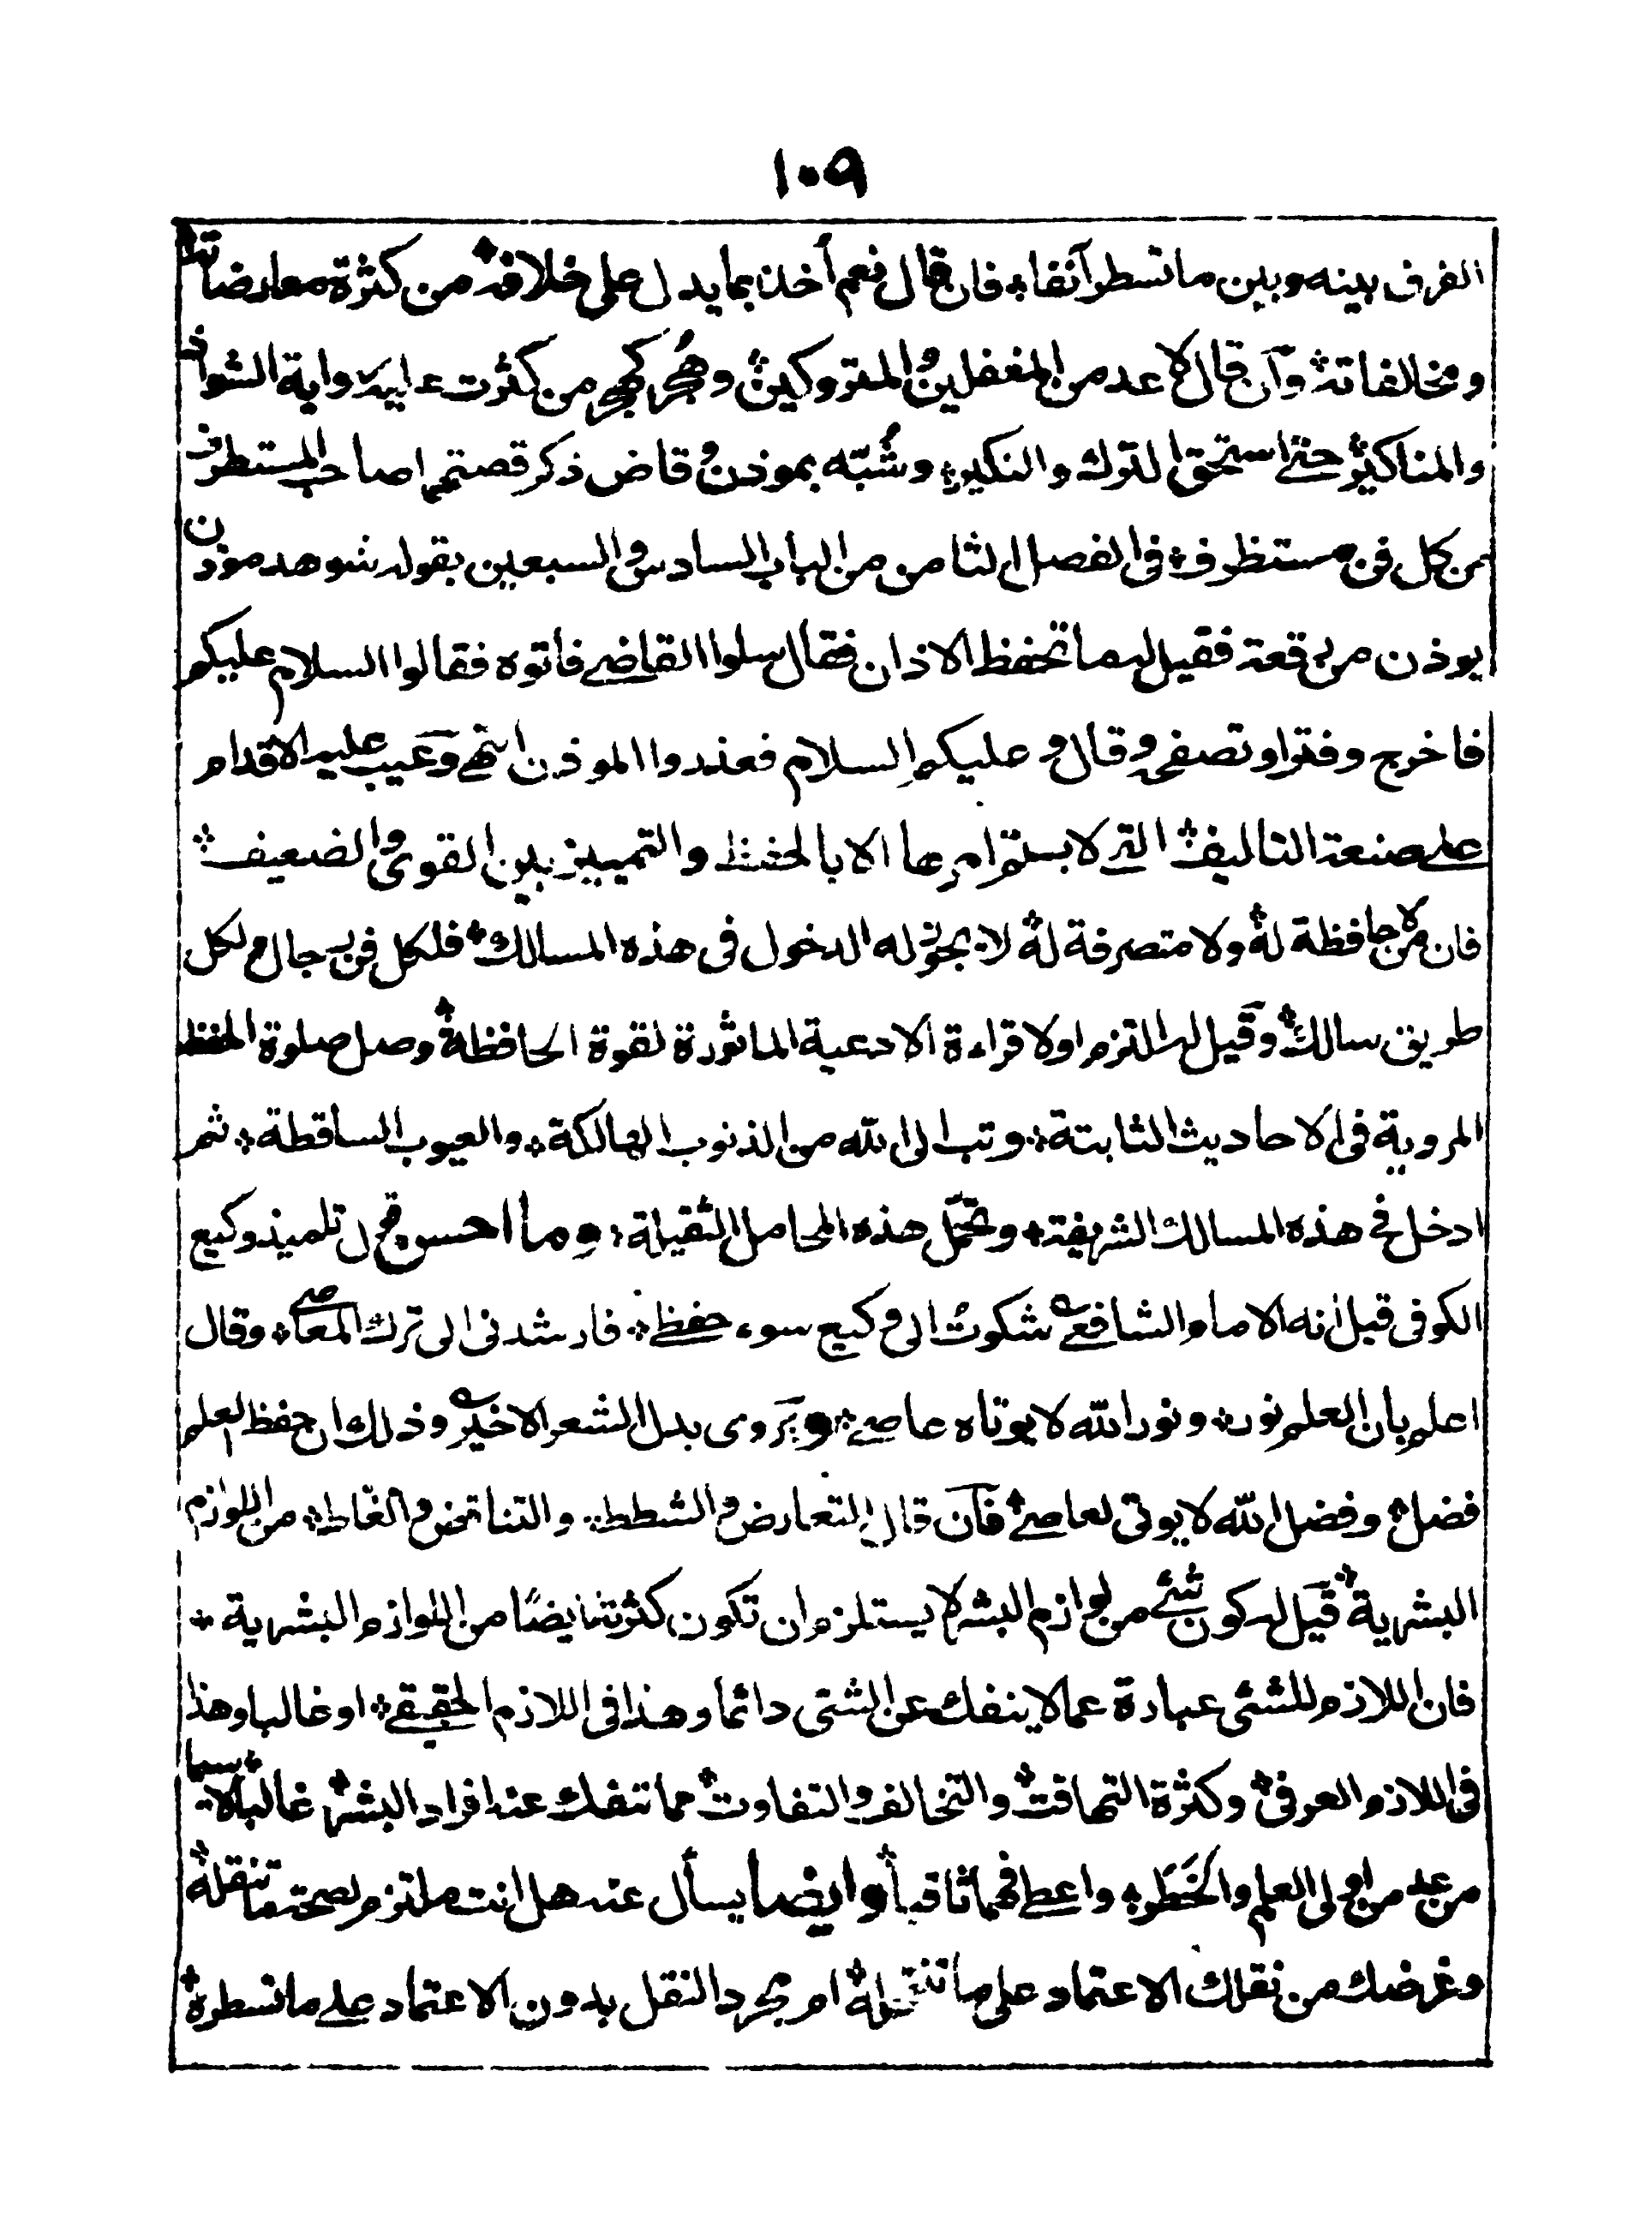 ١٠٩
الفرق بينه وبين ما تسطر آنفا، فان قال نعم أخذ بما يدل على خلافه من كثرة معارضاته
ومخالفاته وآن قال لا عد من المغفلين والمتروكين وهُجر كهجر من كثرت عليه رواية الشواذ
والمناكير حتى استحق الترك والنكير وشُبّه بموذن وقاض ذكر قصتهما صاحب المستطرف
من كل فن مستظرف في الفصل الثامن من الباب السادس والسبعين بقوله شوهد موذن
يوذن من رقعة فقيل له ما تحفظ الاذان فقال سلوا القاضي فاتوه فقالوا السلام عليكم
فاخرج دفترا وتصفحه وقال وعليكم السلام فعذروا الموذن انتهى وعيب عليه الاقدام
على صنعة التاليف التى لا يستتم امرها الا بالحفظ والتمييز بين القوي والضعيف
فان من لا حافظة له ولا متصرفة له لا يجوز له الدخول في هذه المسالك فلكل فن رجال ولكل
طريق سالك وقيل له التزم اولا قراءة الادعية الماثورة لقوة الحافظة وصل صلوة الحفظ
المروية في الاحاديث الثابتة وتب الى الله من الذنوب الهالكة والعيوب الساقطة ثم
ادخل في هذه المسالك الشريفة وتحمّل هذه المحامل الثقيلة وما احسن قول تلميذ وكيع
الكوفي قيل انه الامام الشافعي شكوتُ الى وكيع سوء حفظي فارشدني الى ترك المعاصي وقال
اعلم بان العلم نور ونور الله لا يوتاه عاصي ويروى بدل الشعر الاخير وذلك ان حفظ العلم
فضل وفضل الله لا يوتى لعاصي فآن قال التعارض والشطط والتناقض والغلط من اللوازم
البشرية قيل له كون شئ من لوازم البشر لا يستلزم ان تكون كثرته ايضًا من اللوازم البشرية
فان اللازم للشئ عبارة عما لا ينفك عن الشئ دائما وهذا في اللازم الحقيقي او غالبا وهذا
في اللازم العرفي وكثرة التهافت والتخالف والتفاوت مما تنفك عنه افراد البشر غالبا لا سيما
من عد من اولى العلم والخَطَر واعطى فهما ثاقبا وايضا يسأل عنه هل انت ملتزم لصحة ما تنقله
وغرضك من نقلك الاعتماد على ما تنقله ام مجرد النقل بدون الاعتماد على ما تسطره